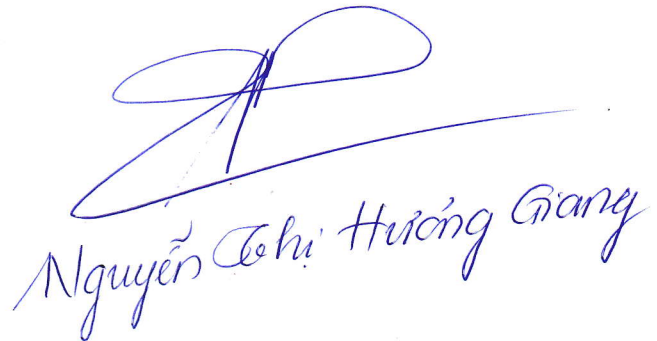 Nguyễn Thị Hương Giang